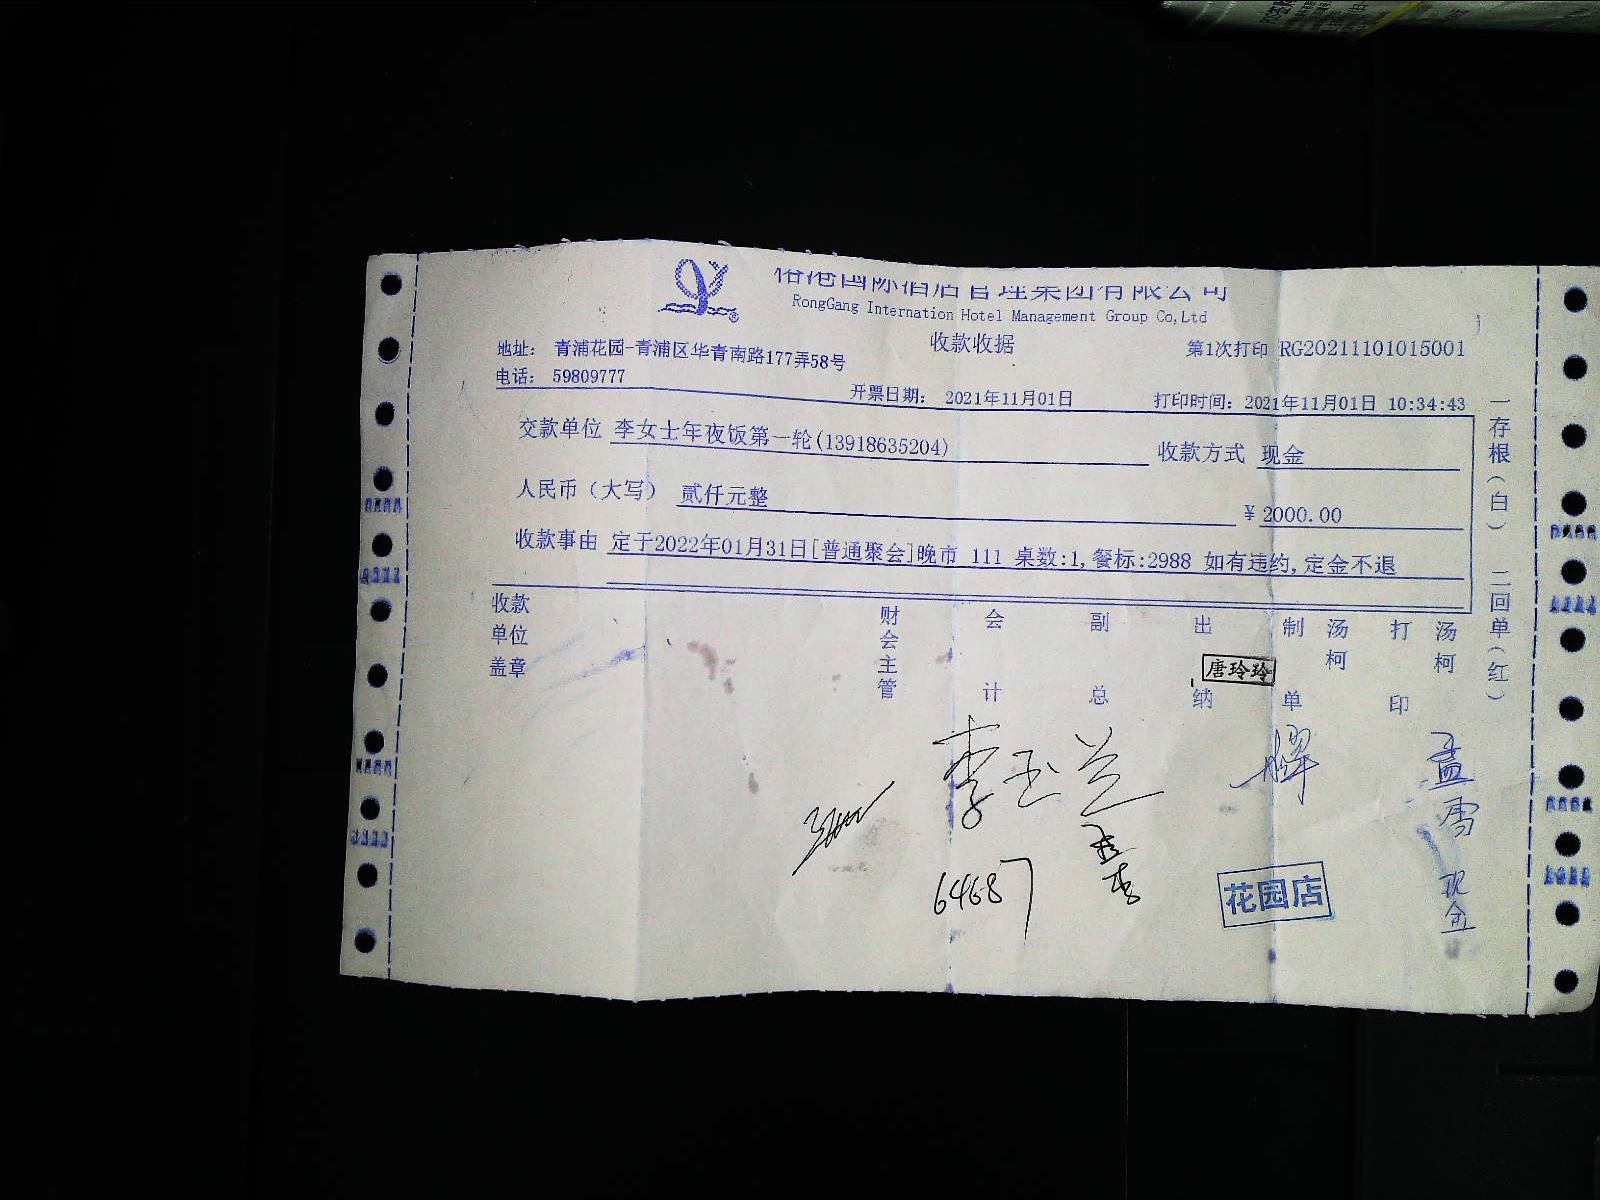 国际酒店管理集团有限公司
RongGang Internation Hotel Management Group Co,Ltd
收款收据
地址： 青浦花园-青浦区华青南路177弄58号
第1次打印 RG20211101015001
电话： 59809777
开票日期： 2021年11月01日
打印时间：2021年11月01日 10:34:43
交款单位 李女士年夜饭第一轮(13918635204)
收款方式 现金
人民币（大写） 贰仟元整
¥2000.00
收款事由 定于2022年01月31日[普通聚会]晚市 111 桌数:1,餐标:2988 如有违约,定金不退
收款单位盖章
财会主管
会计
副总
出纳
唐玲玲
制单
汤柯
打印
汤柯
一存根（白） 二回单（红）
李玉兰
64687
花园店
孟雪
现金